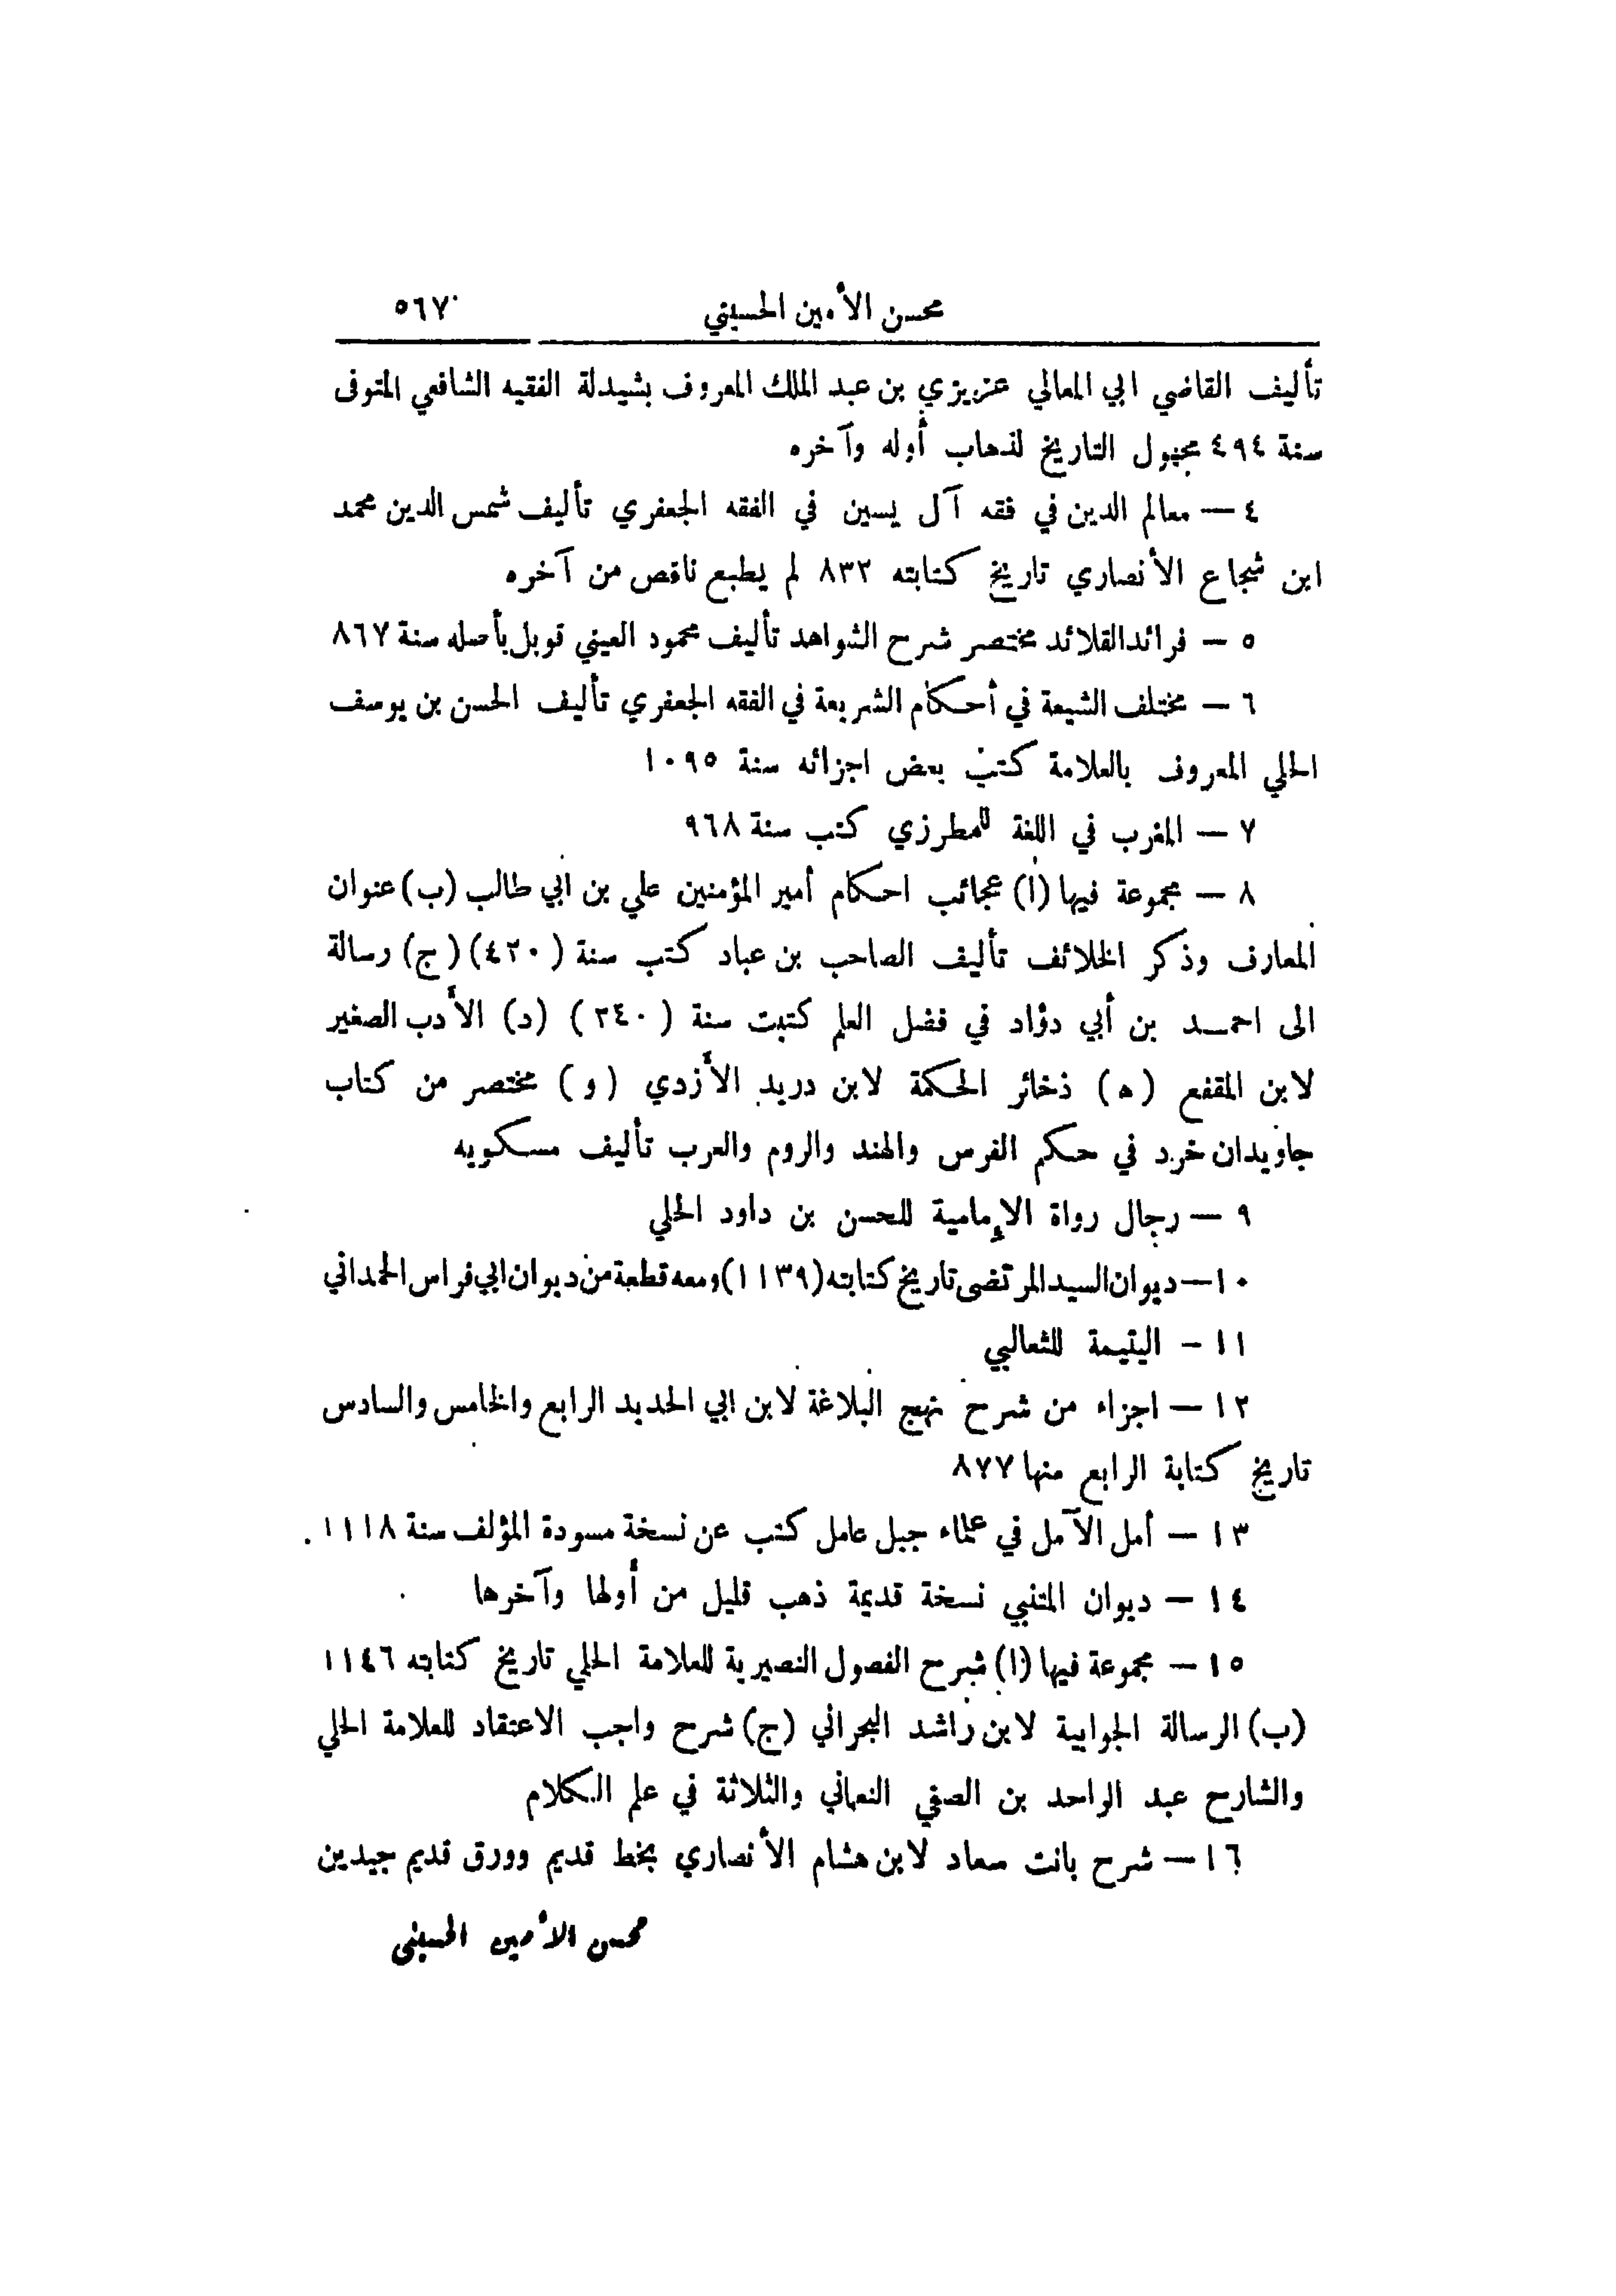 محسن الأمين الحسيني ٥٦٧
تأليف القاضي ابي المعالي عزيزي بن عبد الملك المعروف بشيدلة الفقيه الشافعي المتوفى
سنة ٤٩٤ مجهول التاريخ لذهاب أوله وآخره
٤ — معالم الدين في فقه آل يسين في الفقه الجعفري تأليف شمس الدين محمد
ابن شجاع الأنصاري تاريخ كتابته ٨٣٢ لم يطبع ناقص من آخره
٥ — فرائد القلائد مختصر شرح الشواهد تأليف محمود العيني قوبل بأصله سنة ٨٦٧
٦ — مختلف الشيعة في أحكام الشريعة في الفقه الجعفري تأليف الحسن بن يوسف
الحلي المعروف بالعلامة كتب بعض اجزائه سنة ١٠٩٥
٧ — المغرب في اللغة للمطرزي كتب سنة ٩٦٨
٨ — مجموعة فيها (ا) عجائب احكام أمير المؤمنين علي بن ابي طالب (ب) عنوان
المعارف وذكر الخلائف تأليف الصاحب بن عباد كتب سنة (٤٢٠) (ج) رسالة
الى احمد بن أبي دؤاد في فضل العلم كتبت سنة (٢٤٠) (د) الأدب الصغير
لابن المقفع (ه) ذخائر الحكمة لابن دريد الأزدي (و) مختصر من كتاب
جاويدان خرد في حكم الفرس والهند والروم والعرب تأليف مسكويه
٩ — رجال رواة الإمامية للحسن بن داود الحلي
١٠ — ديوان السيد المرتضى تاريخ كتابته (١١٣٩) ومعه قطعة من ديوان ابي فراس الحمداني
١١ — اليتيمة للثعالبي
١٢ — اجزاء من شرح نهج البلاغة لابن ابي الحديد الرابع والخامس والسادس
تاريخ كتابة الرابع منها ٨٧٧
١٣ — أمل الآمل في علماء جبل عامل كتب عن نسخة مسودة المؤلف سنة ١١١٨
١٤ — ديوان المتنبي نسخة قديمة ذهب قليل من أولها وآخرها
١٥ — مجموعة فيها (ا) شرح الفصول النصيرية للعلامة الحلي تاريخ كتابته ١١٤٦
(ب) الرسالة الجوابية لابن راشد البحراني (ج) شرح واجب الاعتقاد للعلامة الحلي
والشارح عبد الواحد بن الصفي النعماني والثلاثة في علم الكلام
١٦ — شرح بانت سعاد لابن هشام الأنصاري بخط قديم وورق قديم جيدين
محسن الأمين الحسيني